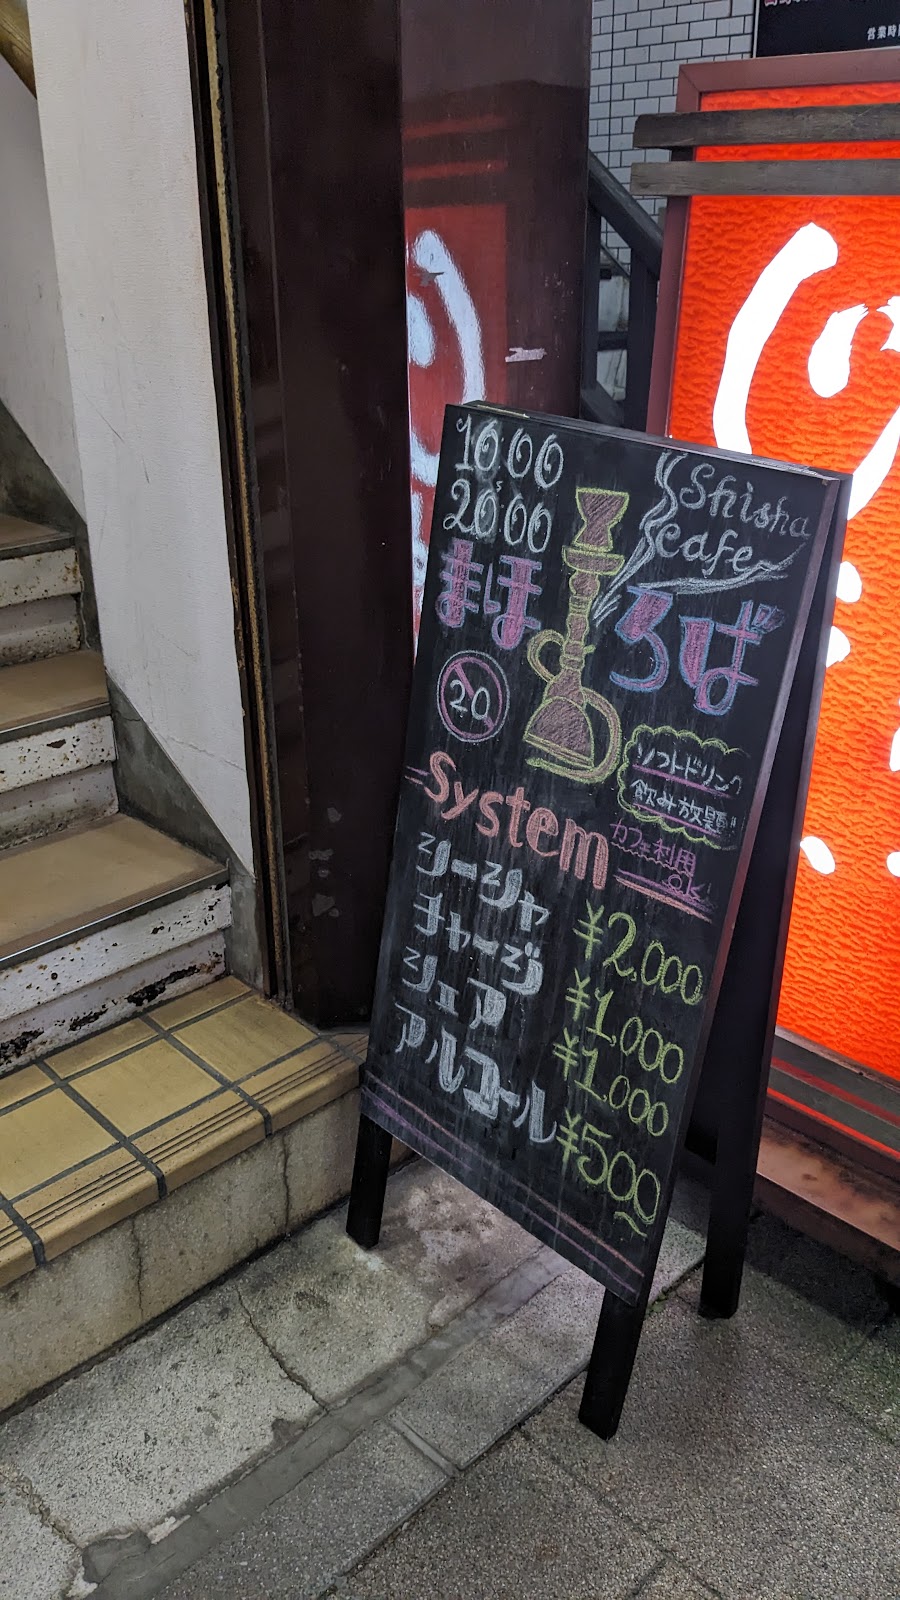 営業時間
10:00
~
20:00
Shisha
cafe
まほろば
20
ソフトドリンク
飲み放題!!
カフェ利用
ok!
System
シーシャ ¥2,000
チャージ ¥1,000
シェア ¥1,000
アルコール ¥500~